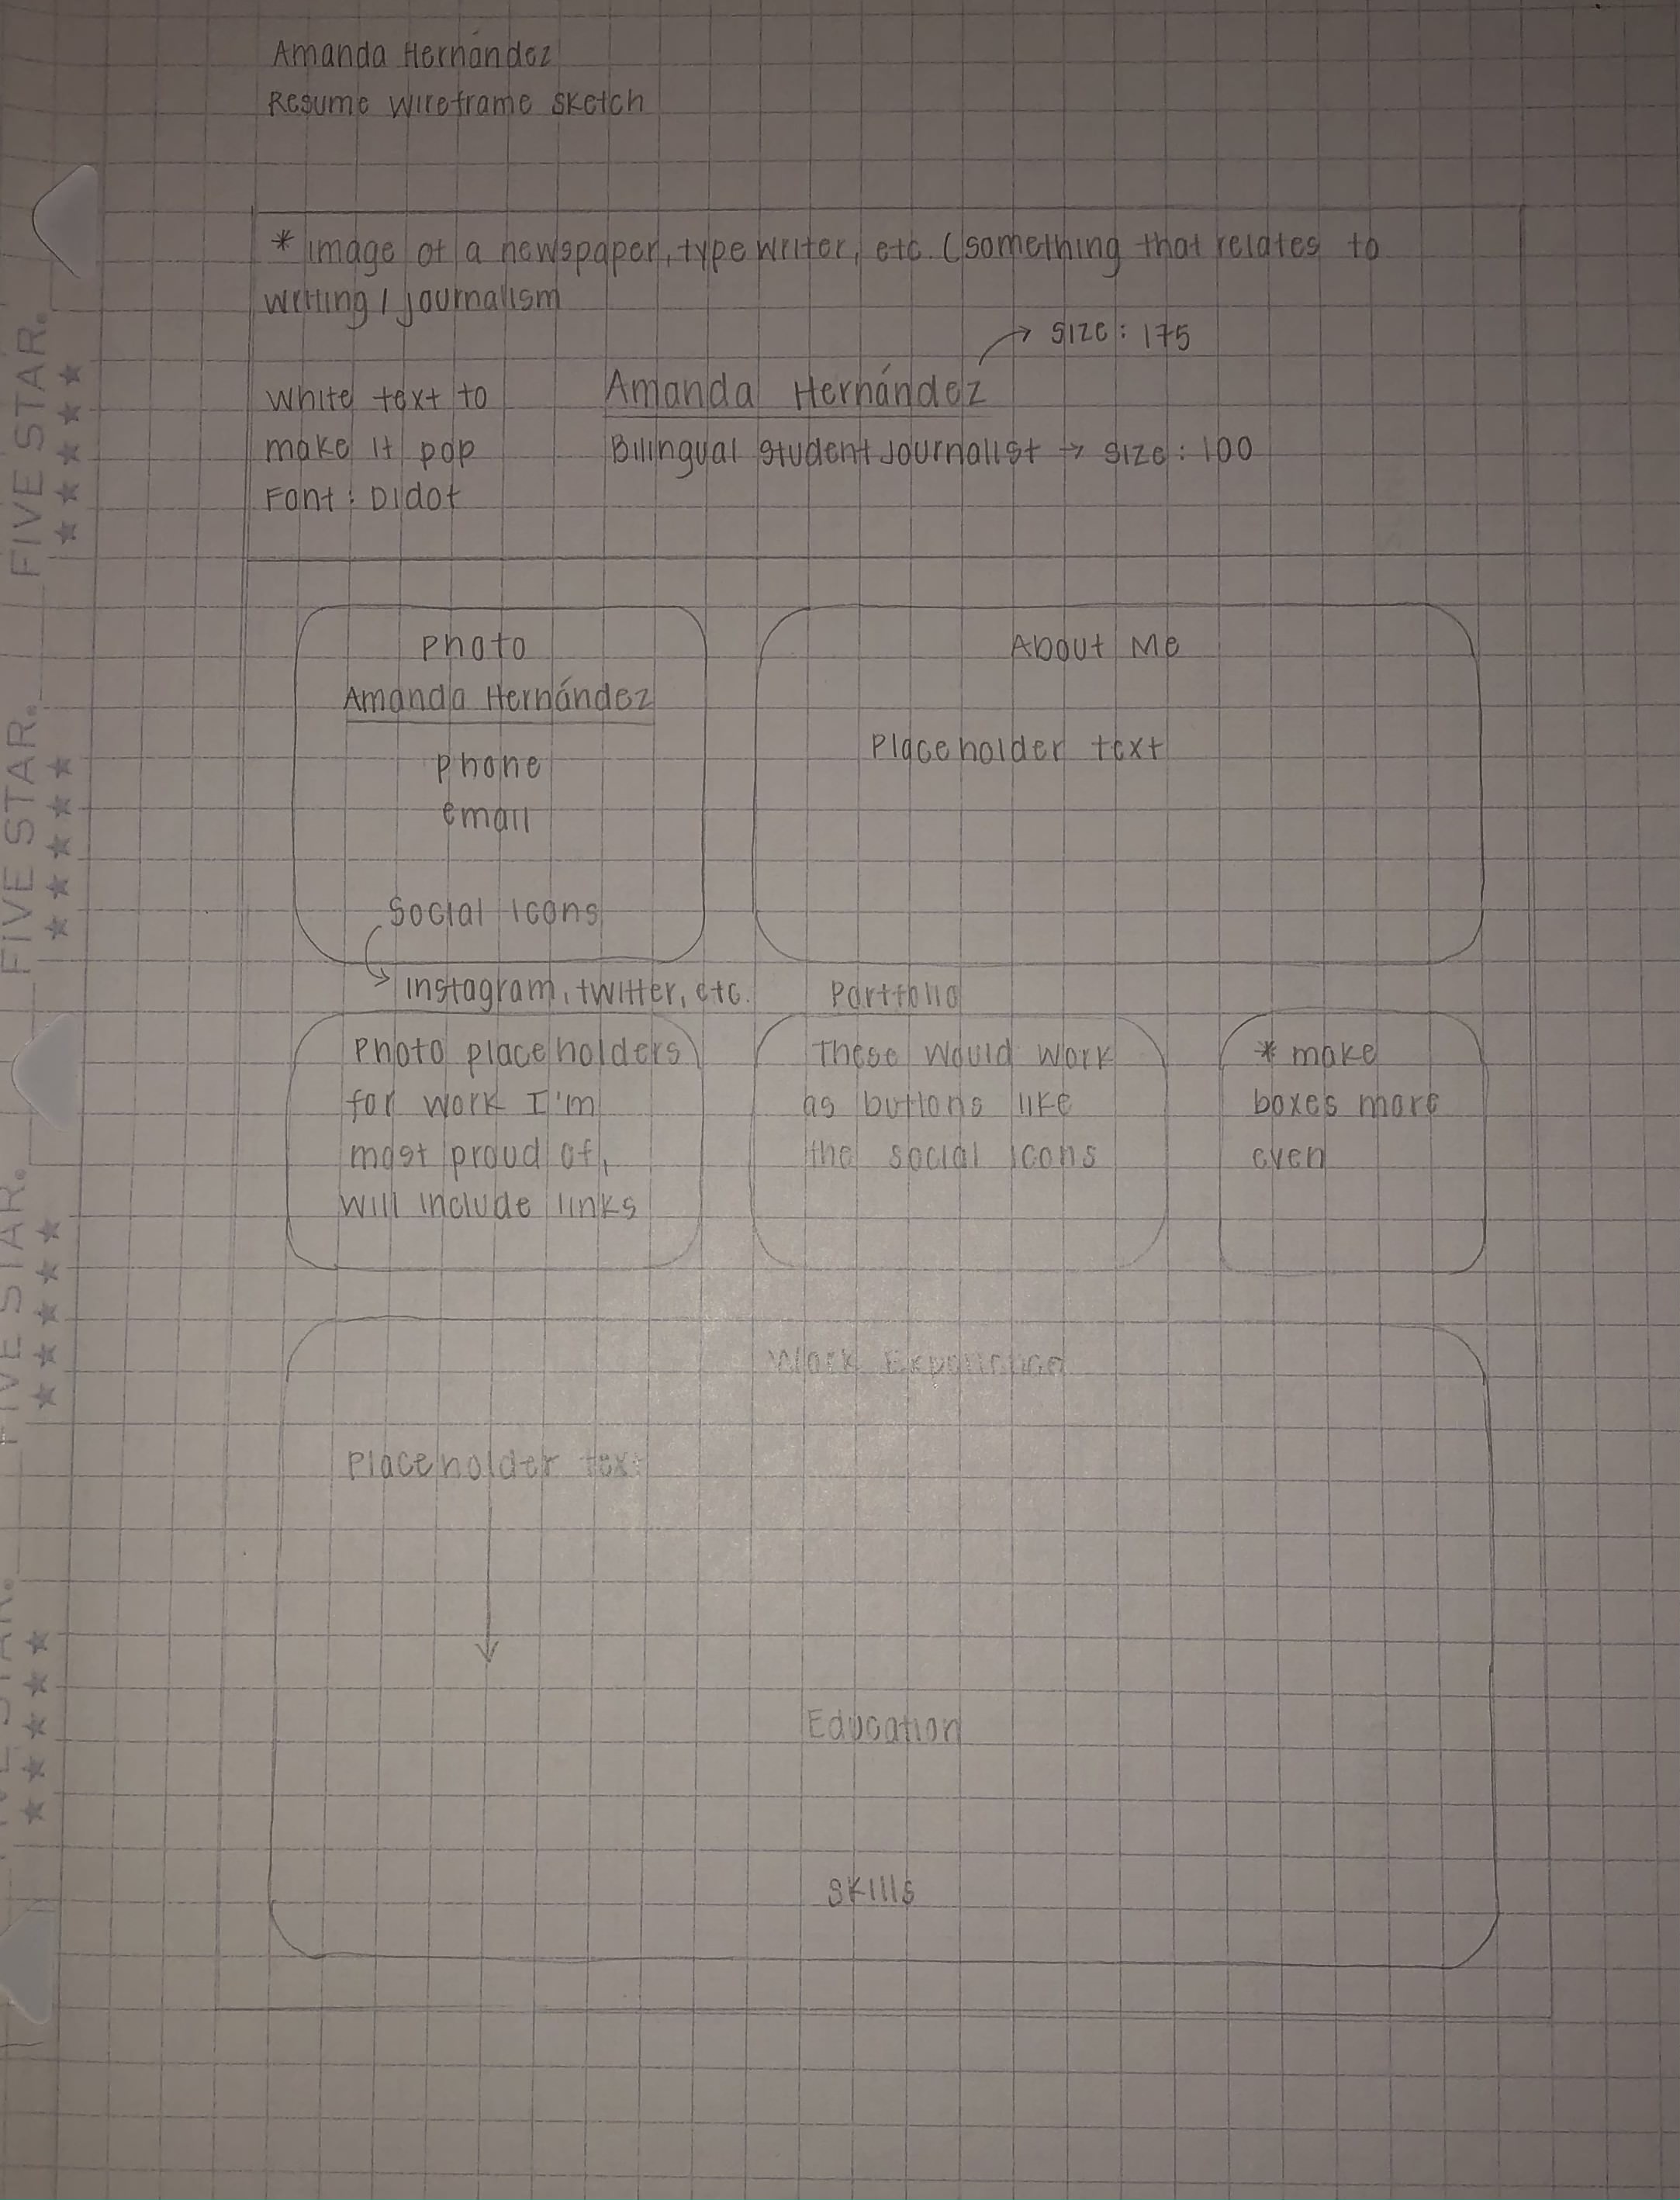 Amanda Hernández
Resume wireframe sketch
* image of a newspaper, typewriter, etc. (something that relates to
writing / journalism
→ size: 175
White text to
make it pop
Font: Didot
Amanda Hernández
Bilingual Student Journalist → size: 100
Photo
Amanda Hernández
phone
email
Social Icons
Instagram, twitter, etc.
About Me
Placeholder text
Portfolio
Photo placeholders
for work I'm
most proud of,
will include links
These would work
as buttons like
the social icons
* make
boxes more
even
Work Experience
Placeholder text
Education
Skills
FIVE STAR.
★★★★★
FIVE STAR.
★★★★★
FIVE STAR.
★★★★★
★★★★★